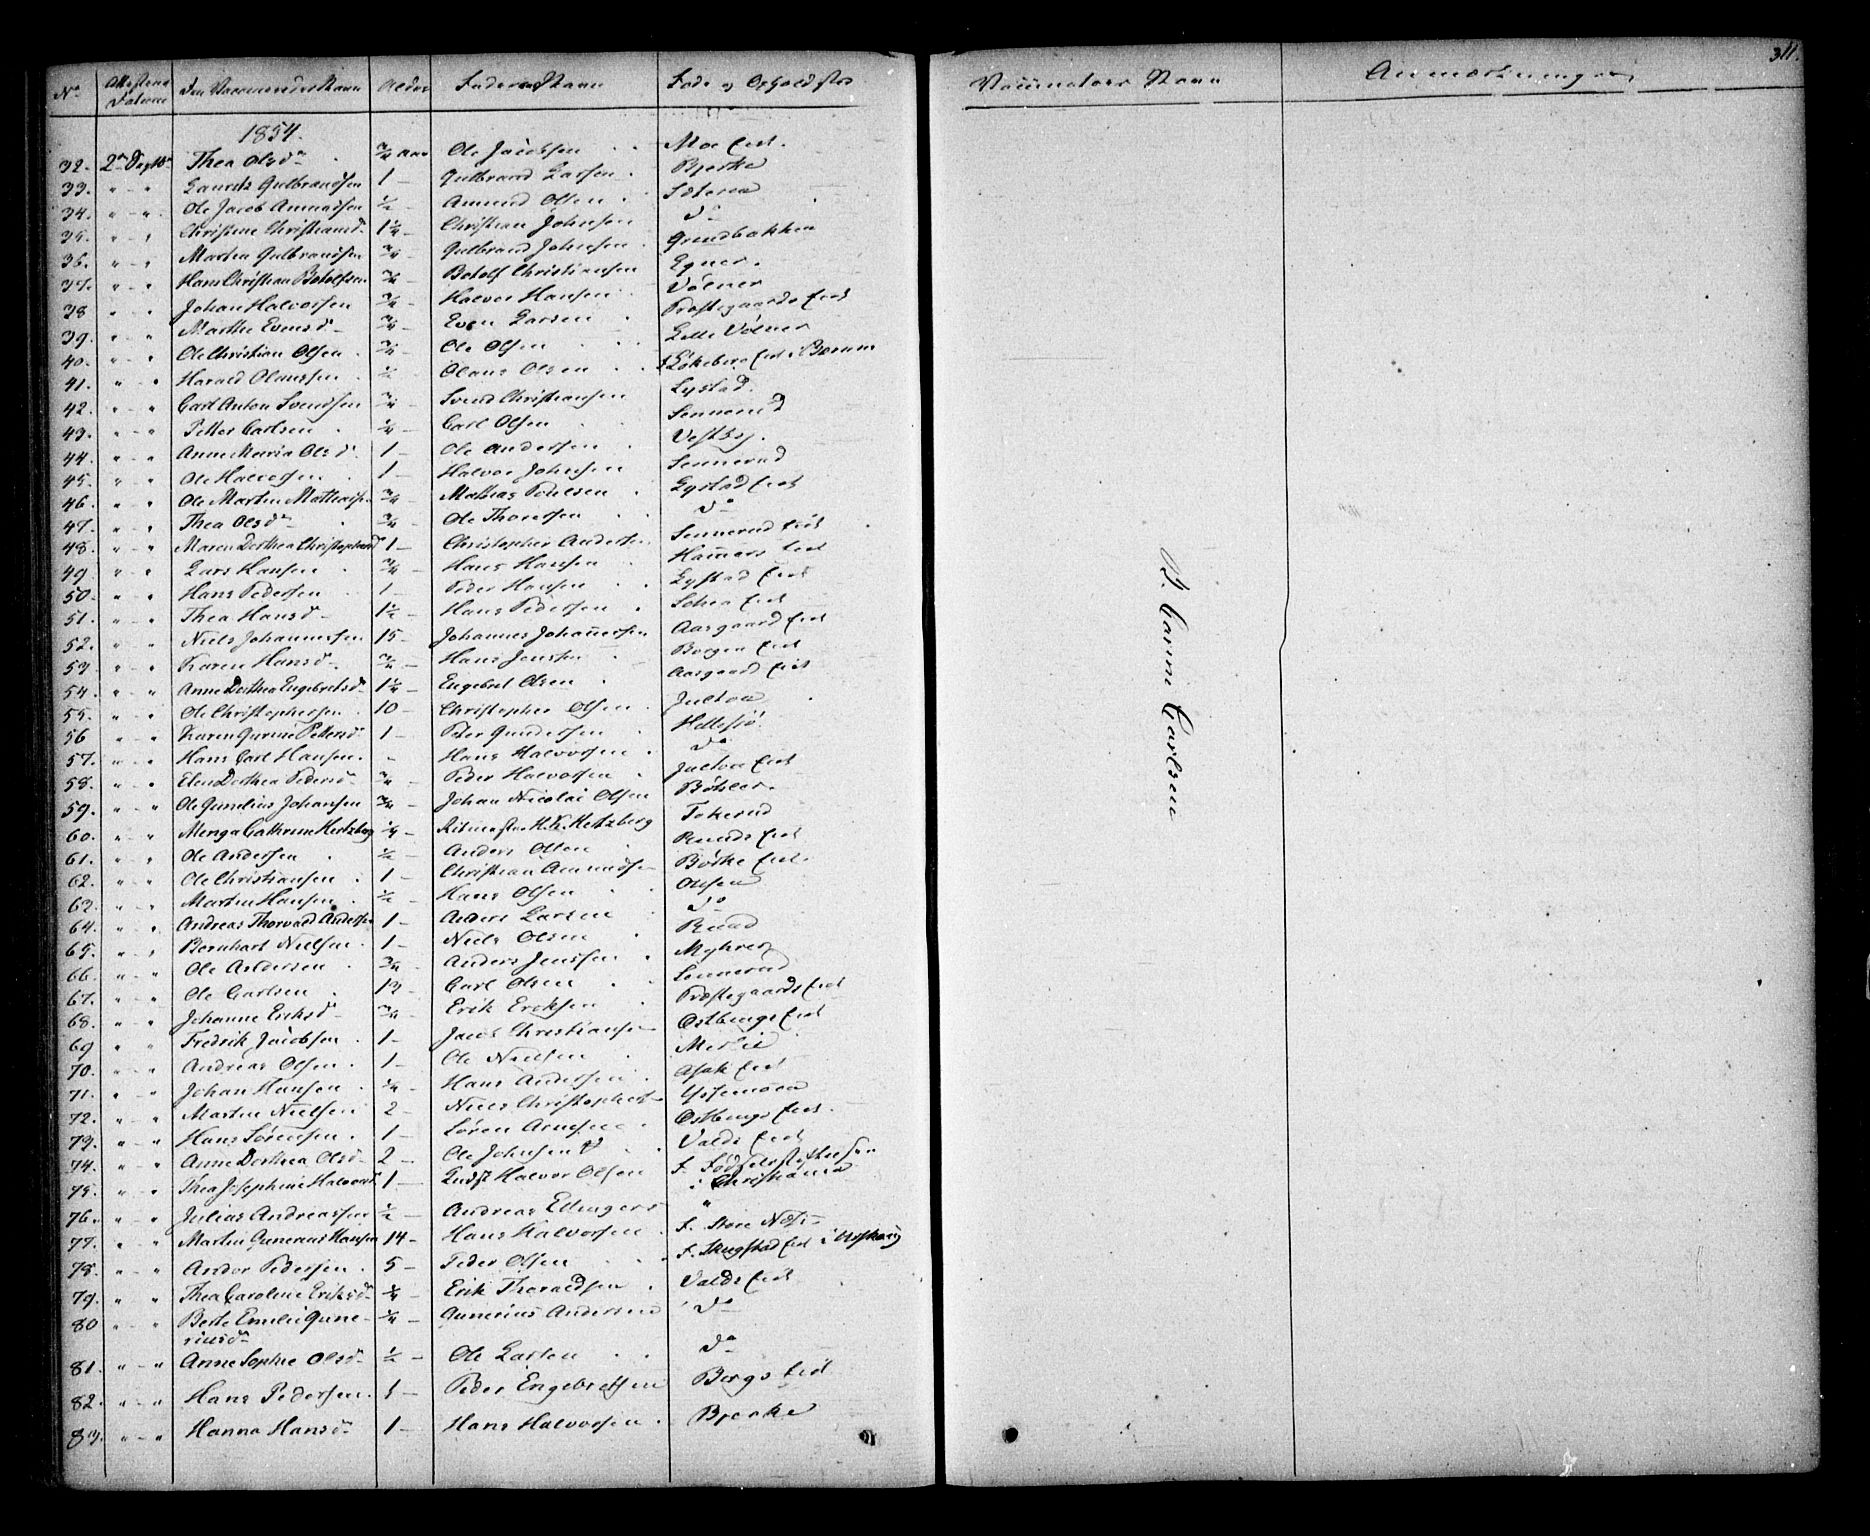 No Attestens Datum Den Vaccineredes Navn Alder Faderens Navn Føde og Opholdsted Vaccinateurs Navn Anmærkninger 311.
1854.
32. 2den Septbr Thea Olsdr ¾ aar Ole Jacobsen Moe Eiet.
33. " - " Laurits Gulbrandsen 1 - Gulbrand Larsen Bjerke
34. " - " Ole Jacob Amundsen ½ - Amund Olsen Sæteren
35. " - " Christine Christiansd 1¼ - Christian Johnsen Do
36. " - " Martin Gulbrandsen ¾ - Gulbrand Johnsen Grindbakken
37. " - " Hans Christian Botolfsen ¾ - Botolf Christiansen Egner.
38 " - " Johan Halvorsen ¾ - Halvor Hansen Vølner
39. " - " Marthe Evensd ¾ - Even Larsen Præstegaards Eiet
40. " - " Ole Christian Olsen ¾ - Ole Olsen Lille Vølner
41. " - " Harald Olaussen ½ - Olaus Olsen f. Løkeberg Eiet i Bærum
42. " - " Carl Anton Svendsen ¾ - Svend Christiansen Lystad.
43. " - " Petter Carlsen ¼ - Carl Olsen Sennerud
44. " - " Anne Maria Olsd 1 - Ole Andersen Vestby.
45. " - " Ole Halvorsen 1 - Halvor Johnsen Sennerud
46. " - " Ole Martin Mathiasen ¾ - Mathias Poulsen Lystad Eiet
47. " - " Thea Olsdr ¾ - Ole Thoresen Do
48. " - " Maren Dorthea Christophersd 1 - Christopher Andersen Sennerud Eiet
49. " - " Lars Hansen ¾ - Hans Hansen Hammers Eiet
50. " - " Hans Pedersen 1 - Peder Hansen Lystad Eiet
51. " - " Thea Hansd 1½ - Hans Pedersen Eiet
52. " - " Niels Johannessen 15 - Johannes Johannessen Aasgaard Eiet
53. " - " Karen Hansd ¾ - Hans Jensen Borgen Eiet
54. " - " Anne Dorthea Engebretsd 1¼ - Engebret Olsen Aasgaard Eiet
55. " - " Ole Christophersen 10 - Christopher Olsen Julton
56 " - " Karen Gurine Petersd 1 - Peter Gundersen Hellesjø.
57. " - " Hans Carl Hansen. - Hans Halvorsen Do
58. " - " Elen Dorthea Pedersd ¾ - Peder Halvorsen Julton Eiet
59. " - " Ole Gunelius Johansen ¾ - Johan Nicolai Olsen Bøhler.
60. " - " Menga Cathrine Hertzberg ¼ - Ritmester Hertzberg Tokerud
61. " - " Ole Andersen ½ - Anders Olsen Ruuds Eiet
62. " - " Ole Christiansen 1 - Christian Amundsen Børke Eiet.
63. " - " Martin Hansen ½ - Hans Olsen
64. " - " Andreas Thorvald Andersen 1 - Anders Larsen Do
65. " - " Bernhart Nielsen 1 - Niels Olsen Ruud
66. " - " Ole Andersen ¾ - Anders Jensen Myhrer
67. " - " Ole Carlsen 13 - Carl Olsen Sennerud
68. " - " Johanne Eriksd ¾ - Erik Eriksen Præstegaards Eiet
69 " - " Fredrik Jacobsen 1 - Jacob Christiansen Østbyngs Eiet
70. " - " Andreas Olsen 1 - Ole Nielsen Merlie
71. " - " Johan Hansen ¼ - Hans Andersen Asak Eiet
72. " - " Martin Nielsen 2 - Niels Christophersen Ystemoen
73. " - " Hans Sørensen 1 - Søren Arnesen Østbyngs Eiet.
74. " - " Anne Dorthea Olsd 2 - Ole Johnsen Valds Eiet
75. " - " Thea Josephine Halvorsd 1 - Halvor Olsen F. Fødselsstiftelsen i Christiania
76. " - " Julius Andreassen ½ - Andreas Ellingers "
77. " - " Martin Gunerius Hansen 14 - Hans Halvorsen F. Store Næs
78. " - " Andor Pedersen 5 - Peder Olsen F. Skugstad Eiet i Urskoug
79. " - " Thea Caroline Eriksd ¼ - Erik Thoraldsen Valds Eiet
80 " - " Berte Emilie Guneriusdr ¼ - Gunerius Andersen Do
81. " - " Anne Sophie Olsd ½ - Ole Larsen Do
82. " - " Hans Pedersen 1 - Peder Engebretsen Bergs Eiet
83. " - " Hanna Hansdr 1 - Hans Halvorsen Bjerke
Carlsen